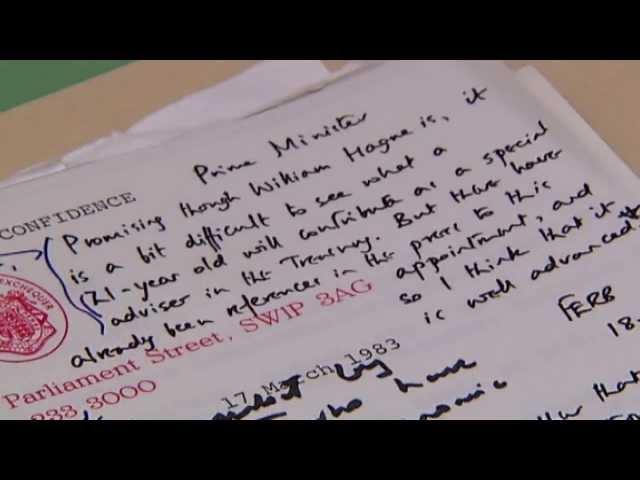 CONFIDENCE
Prime Minister
Promising though William Hague is, it
is a bit difficult to see what a
21-year old will contribute as a special
adviser in the Treasury. But there have
already been references in the press to this
appointment, and
so I think that it
is well advanced.
FERB
18.
EXCHEQUER
Parliament Street, SW1P 3AG
233 3000
17 March 1983
who have
that